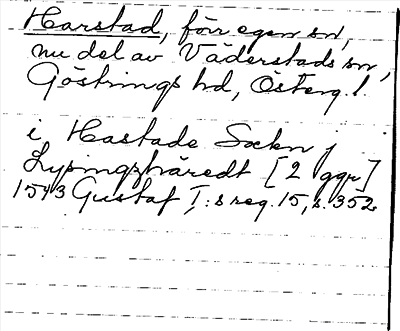 Harstad, förr egen sn,
nu del av Väderstads sn,
Göstrings hd, Österg. l.
i Hastade Sockn j
Lysingzhäredt [2 ggr]
1543 Gustaf I:s reg. 15, s. 352